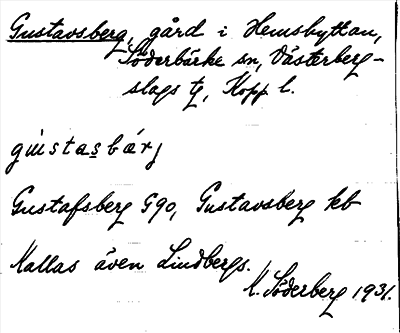 Gustavsberg, gård i Hemshyttan,
Söderbärke sn, Västerberg-
slags tg, Kopp l.
gustasbárj
Gustafsberg G90, Gustavsberg kb
Kallas även Lindbergs.
K. Söderberg 1931.